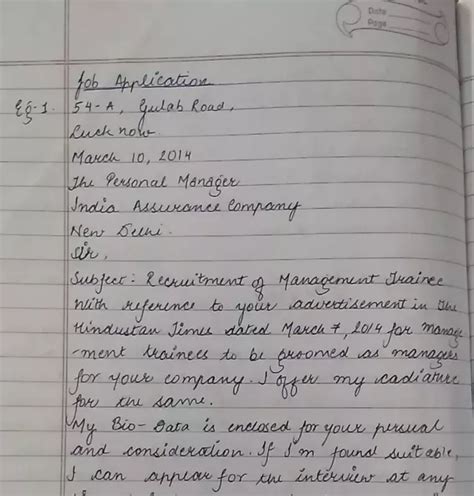 Date
Page
Job Application
Eg-1. 54-A, Gulab Road,
Luck now.
March 10, 2014
The Personal Manager
India Assurance Company
New Delhi.
Sir,
Subject: Recruitment of Management Trainee
With reference to your advertisement in the
Hindustan Times dated March 7, 2014 for manage
-ment trainees to be groomed as managers
for your company. I offer my cadiature
for the same.
My Bio-Data is enclosed for your perusal
and consideration. If I'm found suitable,
I can appear for the interview at any